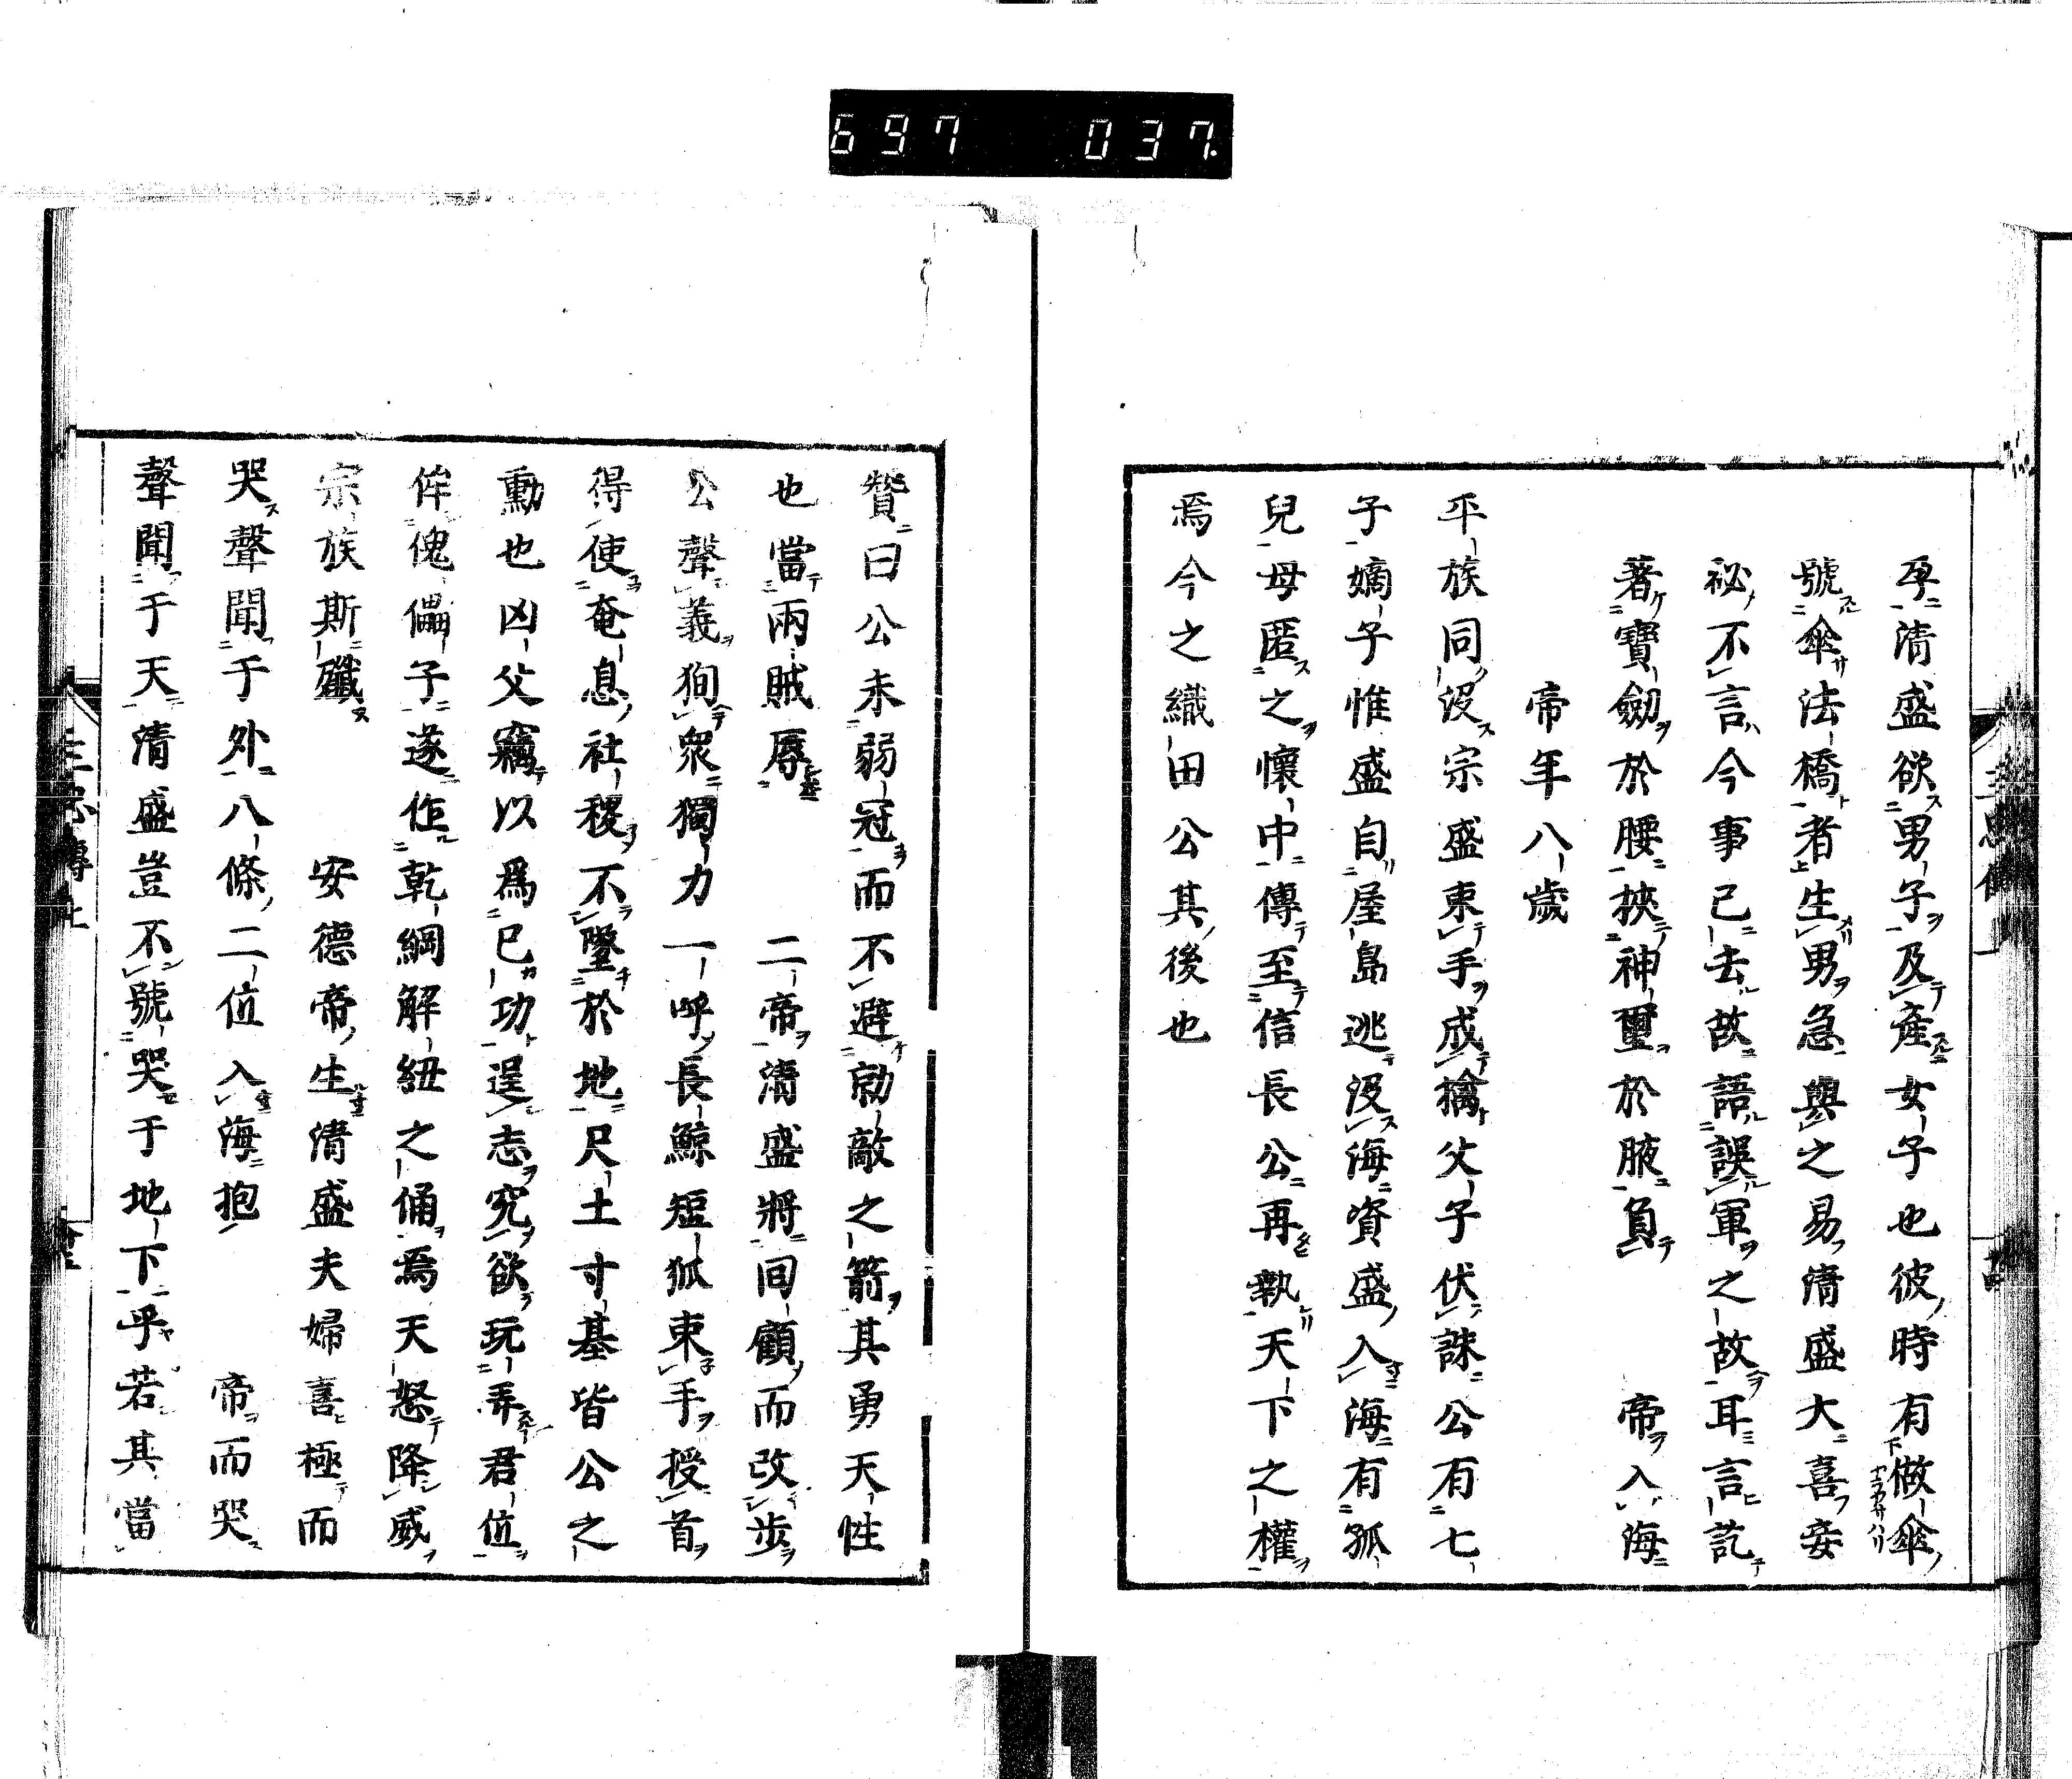 697 037
孕清盛欲男子及產女子也彼時有做傘
號傘法橋者生男急與之易清盛大喜妄
祕不言今事已去故語誤軍之故耳言訖
著寶劒於腰挾神璽於腋負 帝入海
帝年八歲
平族同沒宗盛束手成擒父子伏誅公有七
子嫡子惟盛自屋島逃沒海資盛入海有孤
兒母匿之懷中傳至信長公再執天下之權
焉今之織田公其後也
贊曰公未弱冠而不避勍敵之箭其勇天性
也當兩賊辱 二帝清盛將回顧而改步
公聲義狥衆獨力一呼長鯨短狐束手授首
得使奄息社稷不墜於地尺土寸基皆公之
勳也凶父竊以爲已功逞志究欲玩弄君位
侔傀儡子遂作乾綱解紐之俑焉天怒降威
宗族斯殲 安德帝生清盛夫婦喜極而
哭聲聞于外八條二位入海抱 帝而哭
聲聞于天清盛豈不號哭于地下乎若其當